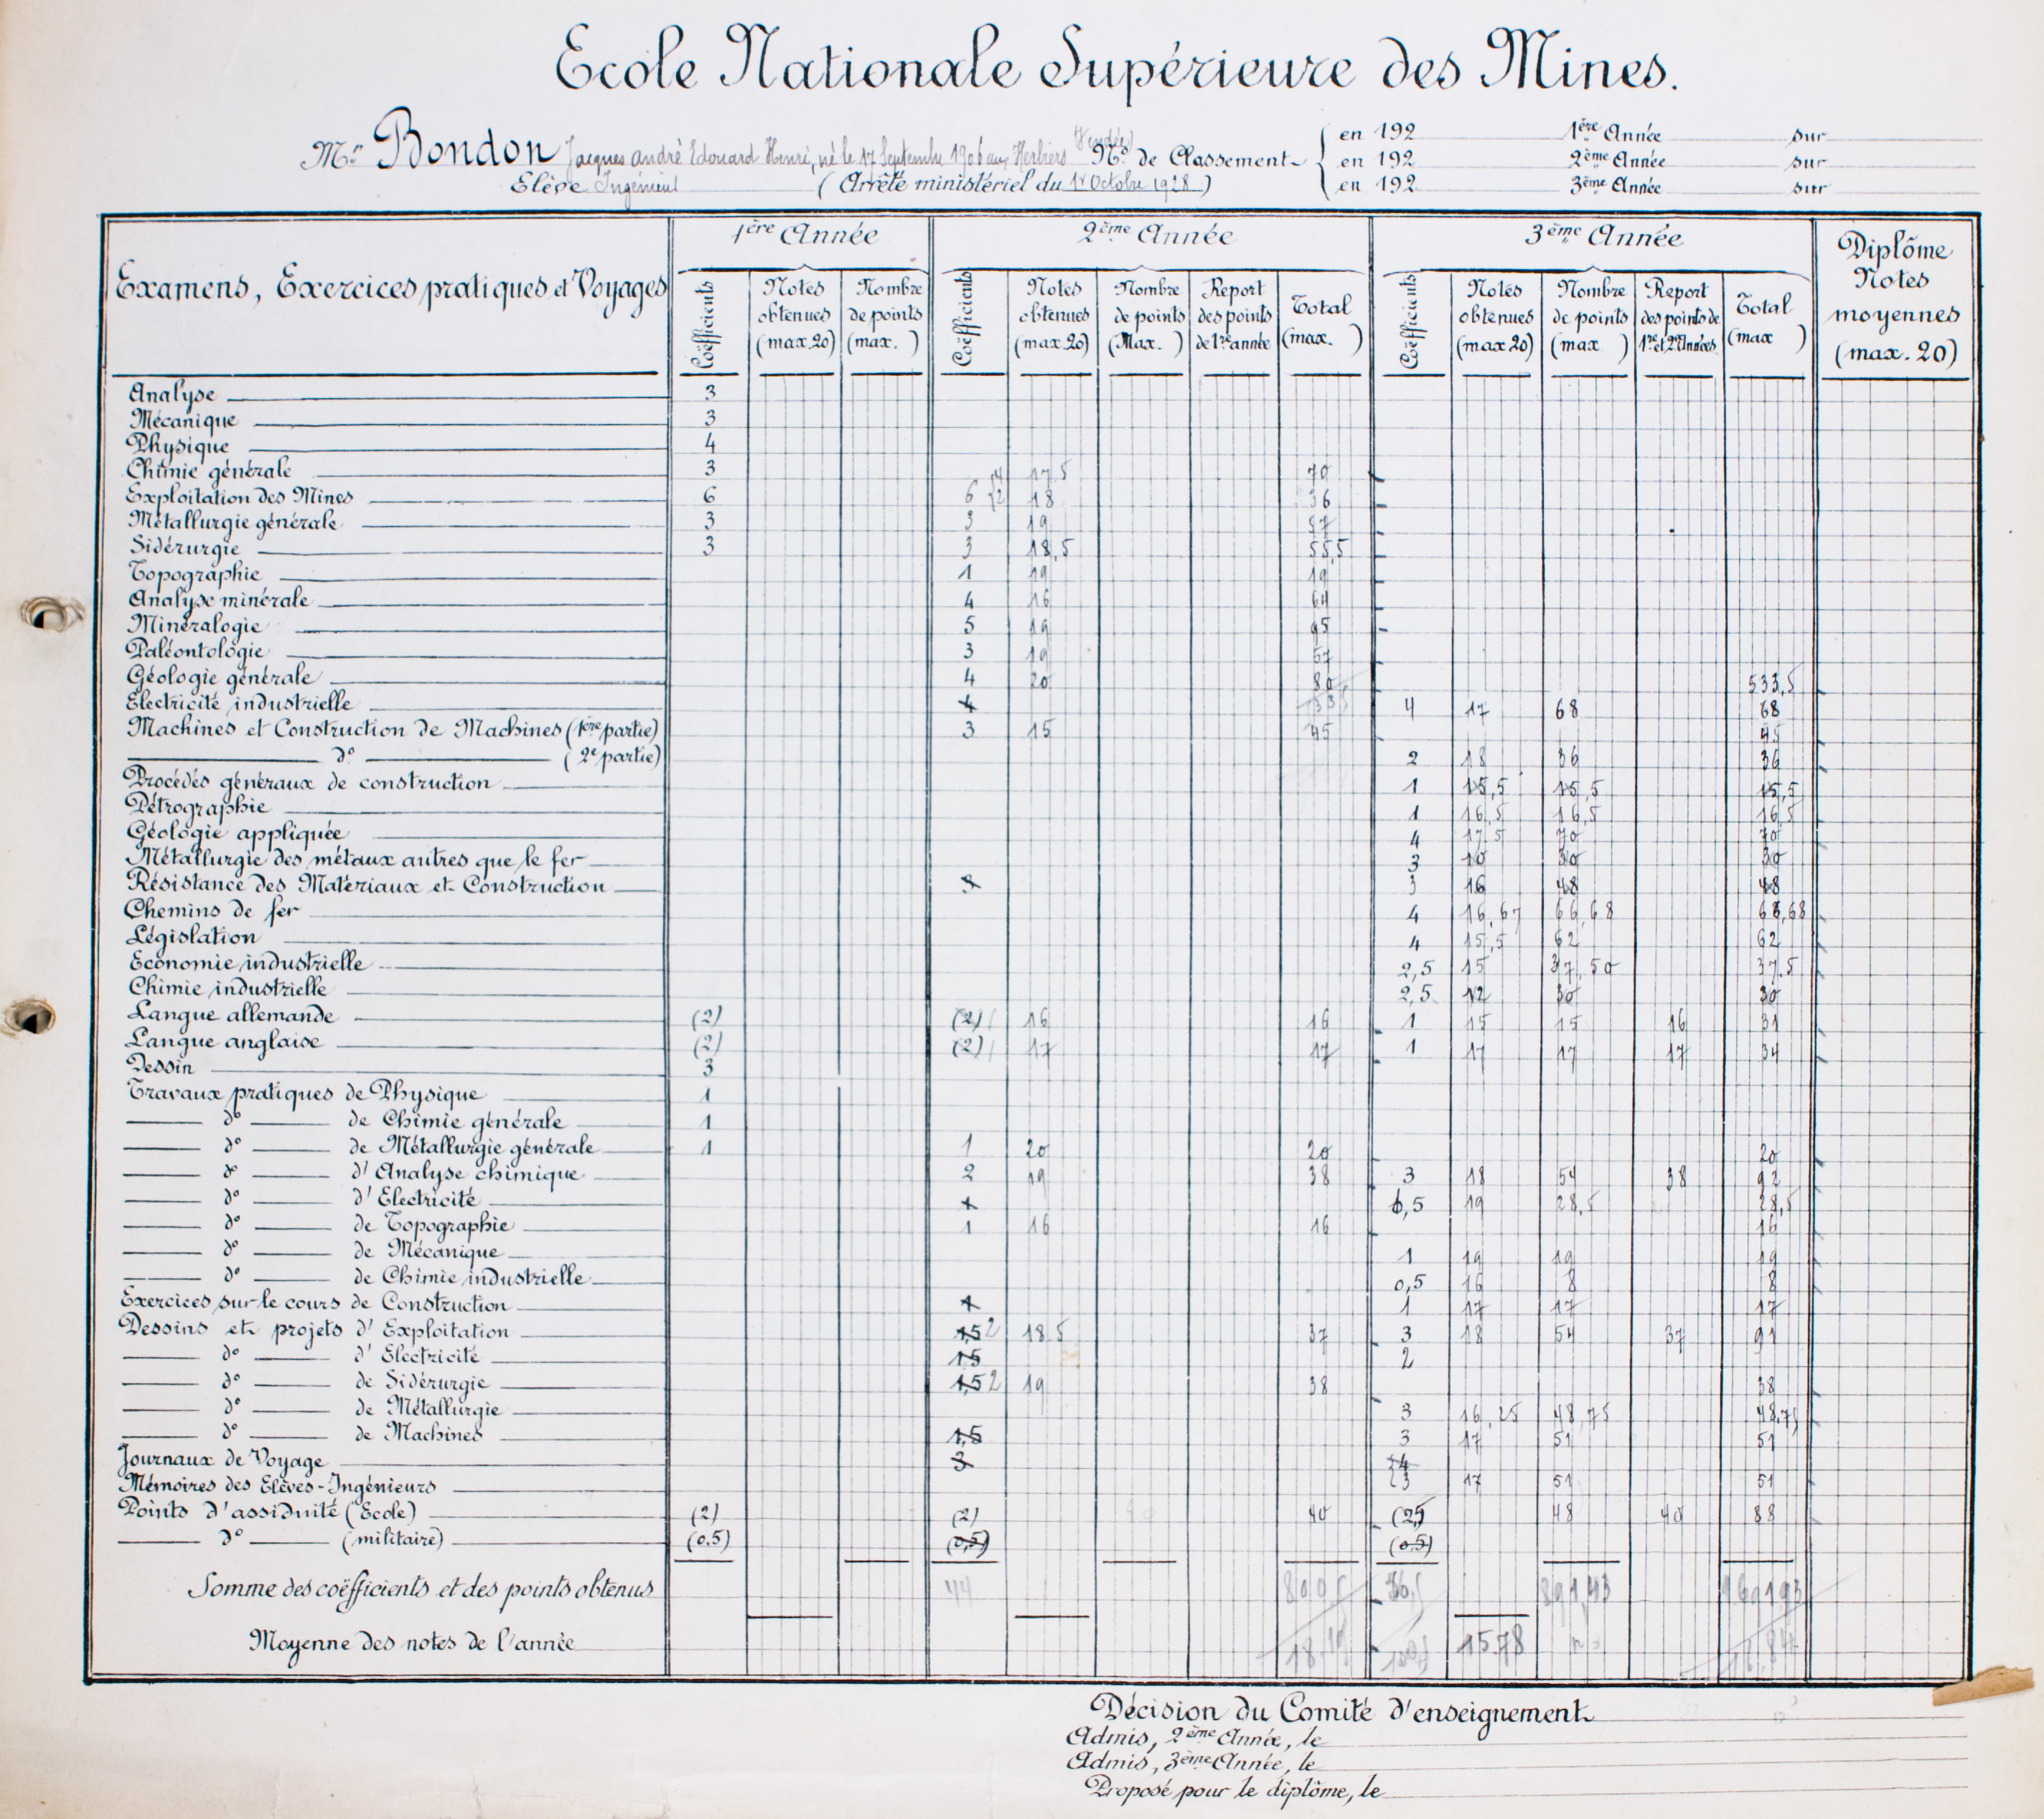 Ecole Nationale Supérieure des Mines.
Mr Bondon Jacques André Edouard Henri, né le 17 Septembre 1906 aux Herbiers (Vendée) Nos de Classement
en 192 1ère Année sur
en 192 2ème Année sur
en 192 3ème Année sur
Elève Ingénieur (Arrêté ministériel du 1r Octobre 1928)
Examens, Exercices pratiques et Voyages
1ère Année
2ème Année
3ème Année
Diplôme Notes moyennes (max. 20)
Coëfficients Notes obtenues (max 20) Nombre de points (max. )
Coëfficients Notes obtenues (max 20) Nombre de points (Max. ) Report des points de 1re année Total (max. )
Coëfficients Notes obtenues (max 20) Nombre de points (max ) Report des points de 1re et 2e Années Total (max )
Analyse 3
Mécanique 3
Physique 4
Chimie générale 3 4 17,5 70
Exploitation des Mines 6 6 2 18 36
Métallurgie générale 3 3 19 57
Sidérurgie 3 3 18,5 55,5
Topographie 1 19 19
Analyse minérale 4 16 64
Minéralogie 5 19 95
Paléontologie 3 19 57
Géologie générale 4 20 80 533,5
Electricité industrielle 4 4 17 68 68
Machines et Construction de Machines (1ère partie) 3 15 45 45
do (2e partie) 2 18 36 36
Procédés généraux de construction 1 15,5 15,5 15,5
Pétrographie 1 16,5 16,5 16,5
Géologie appliquée 4 17,5 70 70
Métallurgie des métaux autres que le fer 3 10 30 30
Résistance des Matériaux et Construction 3 3 16 48 48
Chemins de fer 4 16,67 66,68 66,68
Législation 4 15,5 62 62
Economie industrielle 2,5 15 37,50 37,5
Chimie industrielle 2,5 12 30 30
Langue allemande (2) (2) 16 16 1 15 15 16 31
Langue anglaise (2) (2) 17 17 1 17 17 17 34
Dessin 3
Travaux pratiques de Physique 1
do de Chimie générale 1
do de Métallurgie générale 1 1 20 20 20
do d'Analyse chimique 2 19 38 3 18 54 38 92
do d'Electricité 1 1,5 19 28,5 28,5
do de Topographie 1 16 16 16
do de Mécanique 1 19 19 19
do de Chimie industrielle 0,5 16 8 8
Exercices sur le cours de Construction 1 1 17 17 17
Dessins et projets d'Exploitation 1,5 2 18.5 37 3 18 54 37 91
do d'Electricité 1,5 2
do de Sidérurgie 1,5 2 19 38 38
do de Métallurgie 3 16,25 48,75 48,75
do de Machines 1,5 3 17 51 51
Journaux de Voyage 3 4
Mémoires des Elèves-Ingénieurs 3 17 51 51
Points d'assiduité (Ecole) (2) (2) 40 (2,5) 48 40 88
do (militaire) (0.5) (0,5) (0.5)
Somme des coëfficients et des points obtenus 44 800,5 891,43
Moyenne des notes de l'année 15.78 16,84
Décision du Comité d'enseignement
Admis, 2ème Année, le
Admis, 3ème Année, le
Proposé pour le diplôme, le